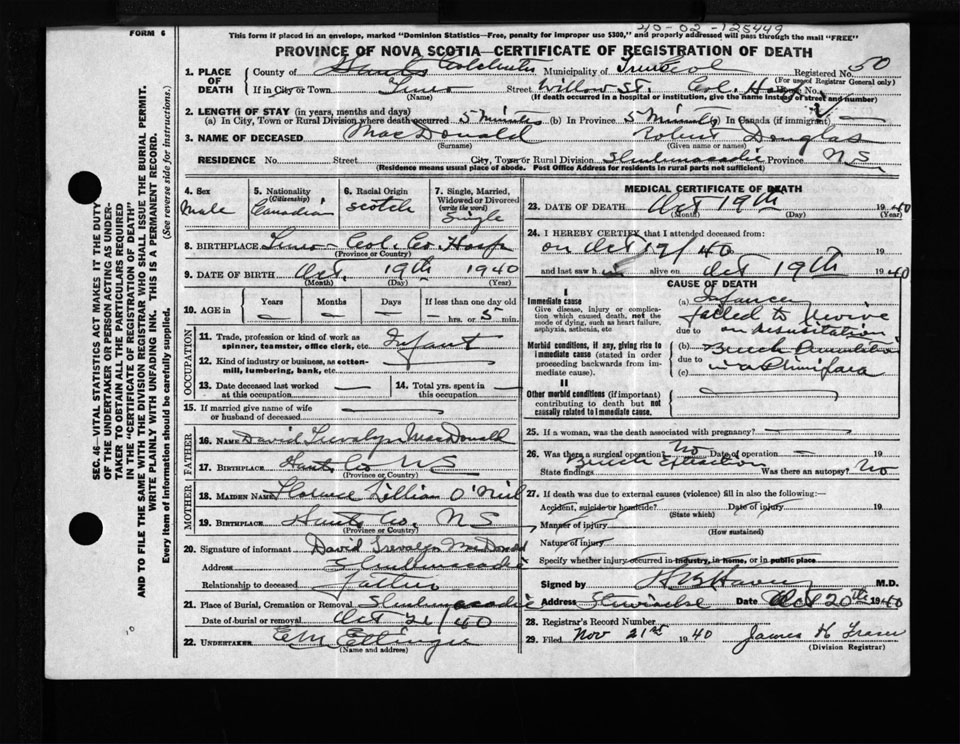 40-02-125449
FORM 6 This form if placed in an envelope, marked "Dominion Statistics—Free, penalty for improper use $300," and properly addressed will pass through the mail "FREE"
PROVINCE OF NOVA SCOTIA—CERTIFICATE OF REGISTRATION OF DEATH
1. PLACE OF DEATH County of Hants Colchester Municipality of Truro Col Registered No. 50
(For use of Registrar General only)
If in City or Town Truro (Name) Street Willow St. Col. Hosp House No.
(If death occurred in a hospital or institution, give the name instead of street and number)
2. LENGTH OF STAY (in years, months and days)
(a) In City, Town or Rural Division where death occurred 5 Minutes (b) In Province 5 Minutes (c) In Canada (if immigrant)
3. NAME OF DECEASED MacDonald Robert Douglas
(Surname) (Given name or names)
RESIDENCE No. Street City, Town or Rural Division Shubenacadie Province NS
(Residence means usual place of abode. Post Office Address for residents in rural parts not sufficient)
4. Sex Male
5. Nationality (Citizenship) Canadian
6. Racial Origin Scotch
7. Single, Married, Widowed or Divorced (write the word) Single
8. BIRTHPLACE Truro - Col. Co. Hosp
(Province or Country)
9. DATE OF BIRTH Oct. 19th 1940
(Month) (Day) (Year)
10. AGE in Years Months Days If less than one day old
hrs. or 5 min.
OCCUPATION
11. Trade, profession or kind of work as spinner, teamster, office clerk, etc. Infant
12. Kind of industry or business, as cotton-mill, lumbering, bank, etc.
13. Date deceased last worked at this occupation
14. Total yrs. spent in this occupation
15. If married give name of wife or husband of deceased
FATHER
16. NAME David Trevalyn MacDonald
17. BIRTHPLACE Hants Co NS
(Province or Country)
MOTHER
18. MAIDEN NAME Florence Lillian O'Neil
19. BIRTHPLACE Hants Co. NS
(Province or Country)
20. Signature of informant David Trevalyn MacDonald
Address Shubenacadie
Relationship to deceased Father
21. Place of Burial, Cremation or Removal Shubenacadie
Date of burial or removal Oct 21/40
22. UNDERTAKER E M Ettinger
(Name and address)
MEDICAL CERTIFICATE OF DEATH
23. DATE OF DEATH Oct 19th 1940
(Month) (Day) (Year)
24. I HEREBY CERTIFY that I attended deceased from:
on Oct 19/40 19
and last saw h alive on Oct 19th 1940
CAUSE OF DEATH
I
Immediate cause
Give disease, injury or complication which caused death, not the mode of dying, such as heart failure, asphyxia, asthenia, etc
(a) Infancy
failed to revive
due to on resusitation
Morbid conditions, if any, giving rise to immediate cause (stated in order proceeding backwards from immediate cause).
(b) Breech
due to
(c) in a Primipara
II
Other morbid conditions (if important) contributing to death but not causally related to immediate cause.
25. If a woman, was the death associated with pregnancy?
26. Was there a surgical operation? No Date of operation
State findings Breech Extraction Was there an autopsy? No
27. If death was due to external causes (violence) fill in also the following:—
Accident, suicide or homicide? Date of injury 19
(State which)
Manner of injury
(How sustained)
Nature of injury
Specify whether injury occurred in industry, in home, or in public place
Signed by M.D.
Address Stewiacke Date Oct 20th 1940
28. Registrar's Record Number
29. Filed Nov 21st 1940 James K Fraser
(Division Registrar)
SEC. 46—VITAL STATISTICS ACT MAKES IT THE DUTY OF THE UNDERTAKER OR PERSON ACTING AS UNDERTAKER TO OBTAIN ALL THE PARTICULARS REQUIRED IN THE "CERTIFICATE OF REGISTRATION OF DEATH" AND TO FILE THE SAME WITH THE DIVISION REGISTRAR WHO SHALL ISSUE THE BURIAL PERMIT.
WRITE PLAINLY WITH UNFADING INK. THIS IS A PERMANENT RECORD.
Every item of information should be carefully supplied. (See reverse side for instructions.)